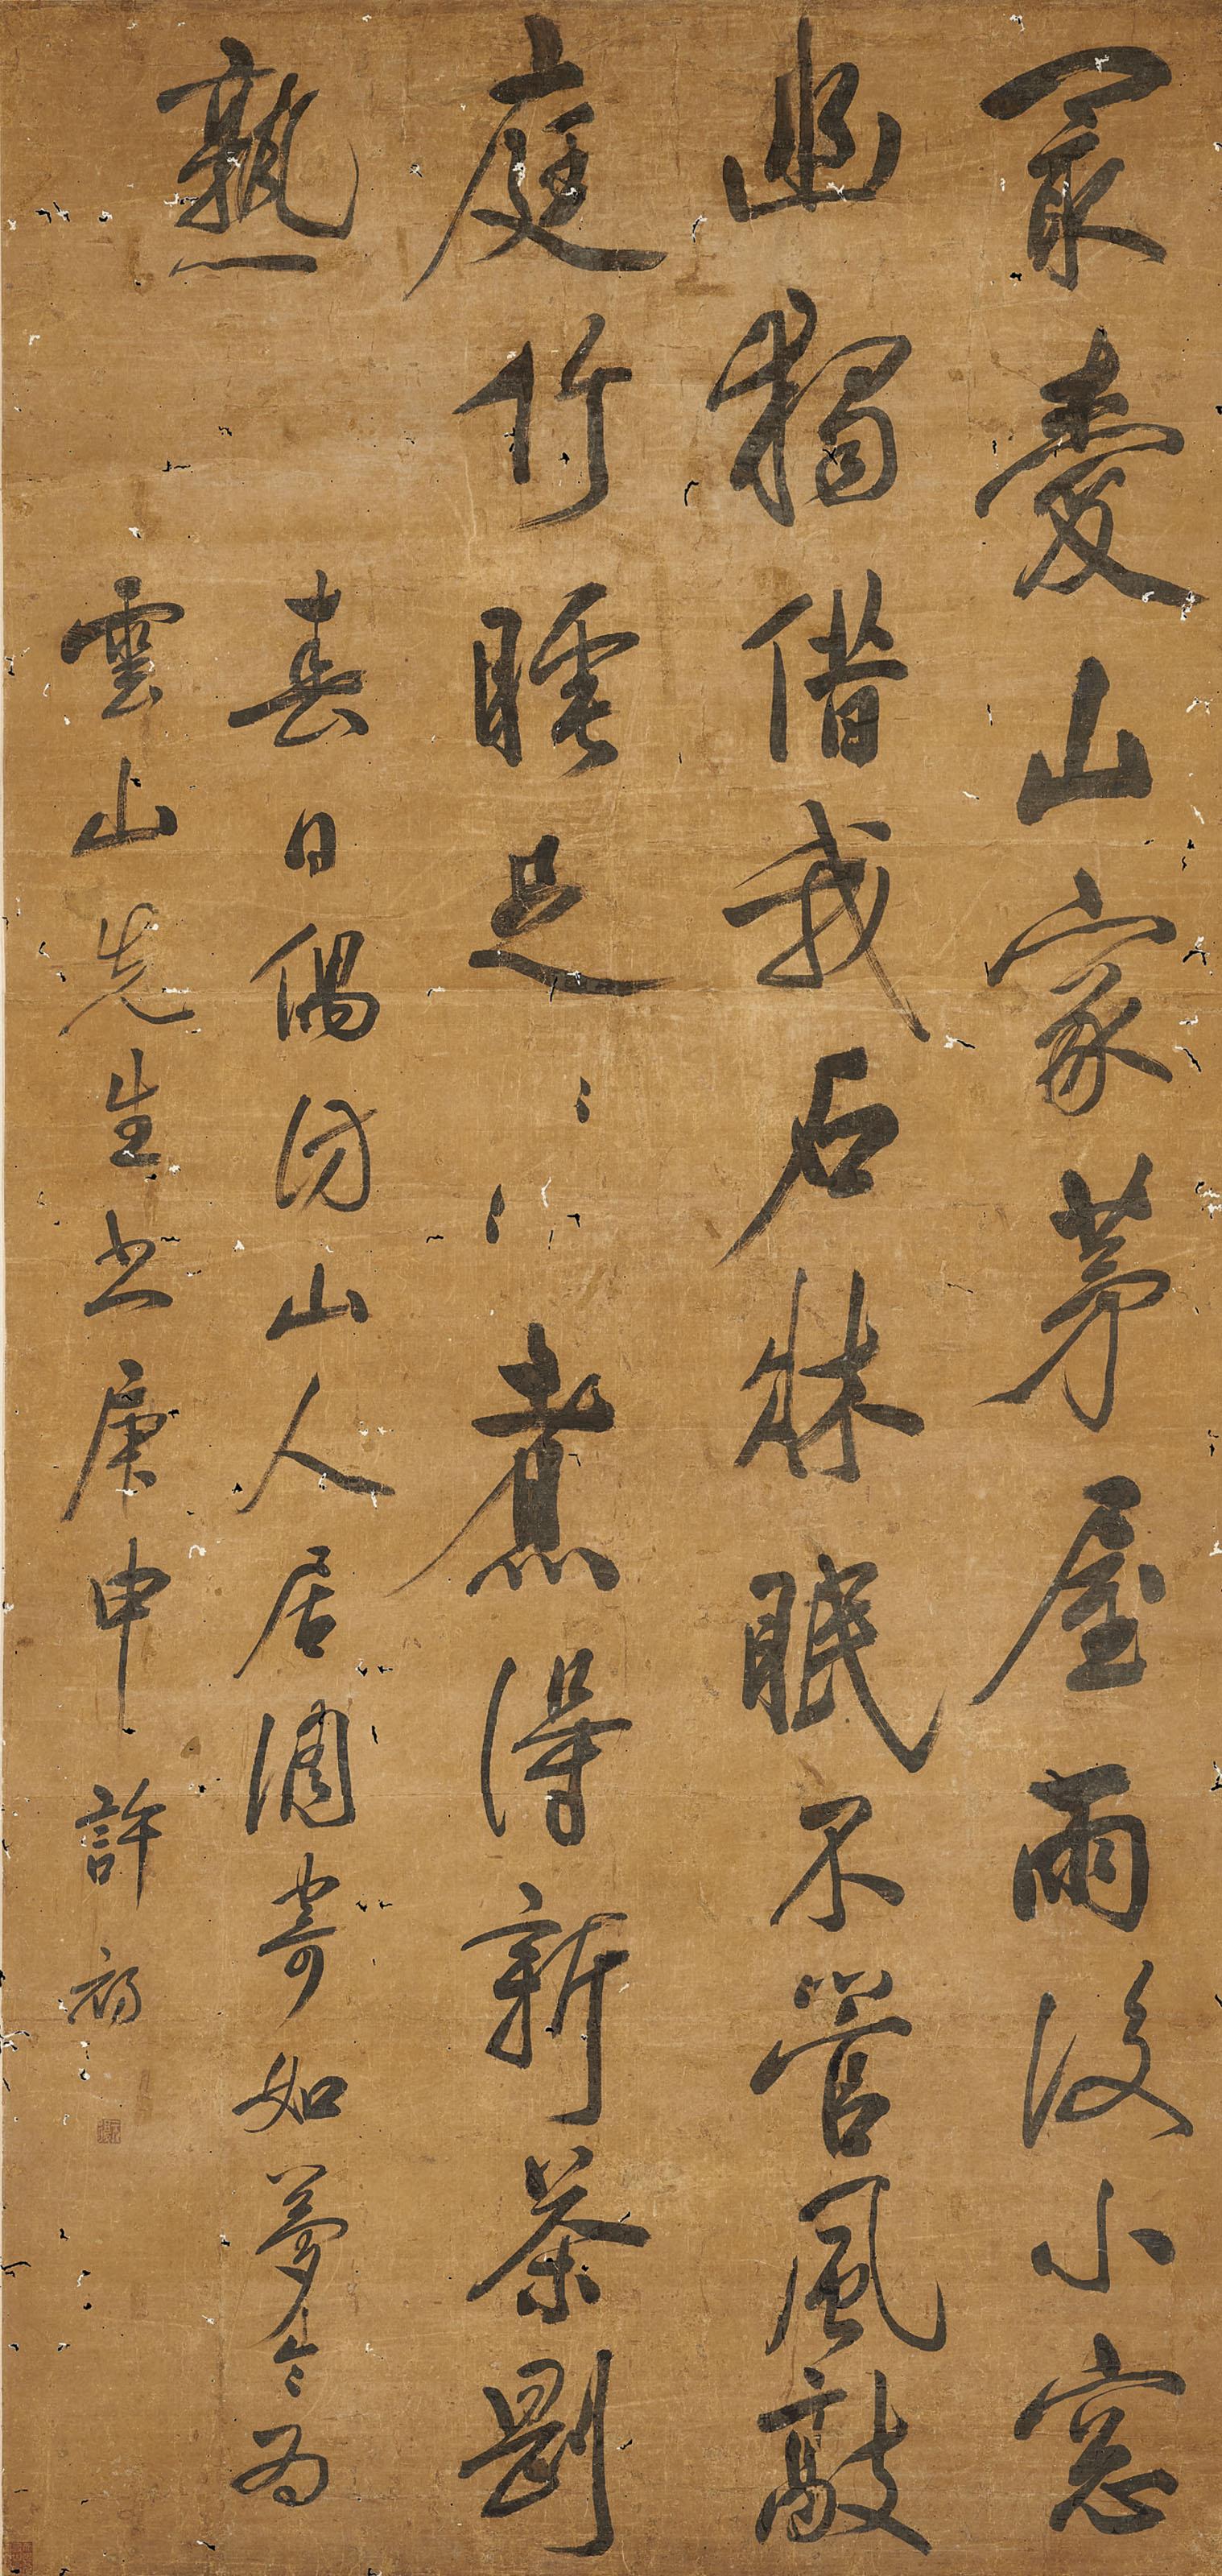 冣愛山家茅屋雨後小窓
幽獨借我石牀眠不管風敲
庭竹睡足〻〻煮得新茶剛
熟
春日偶訪山人居調寄如夢令為
雲山先生書庚申許初